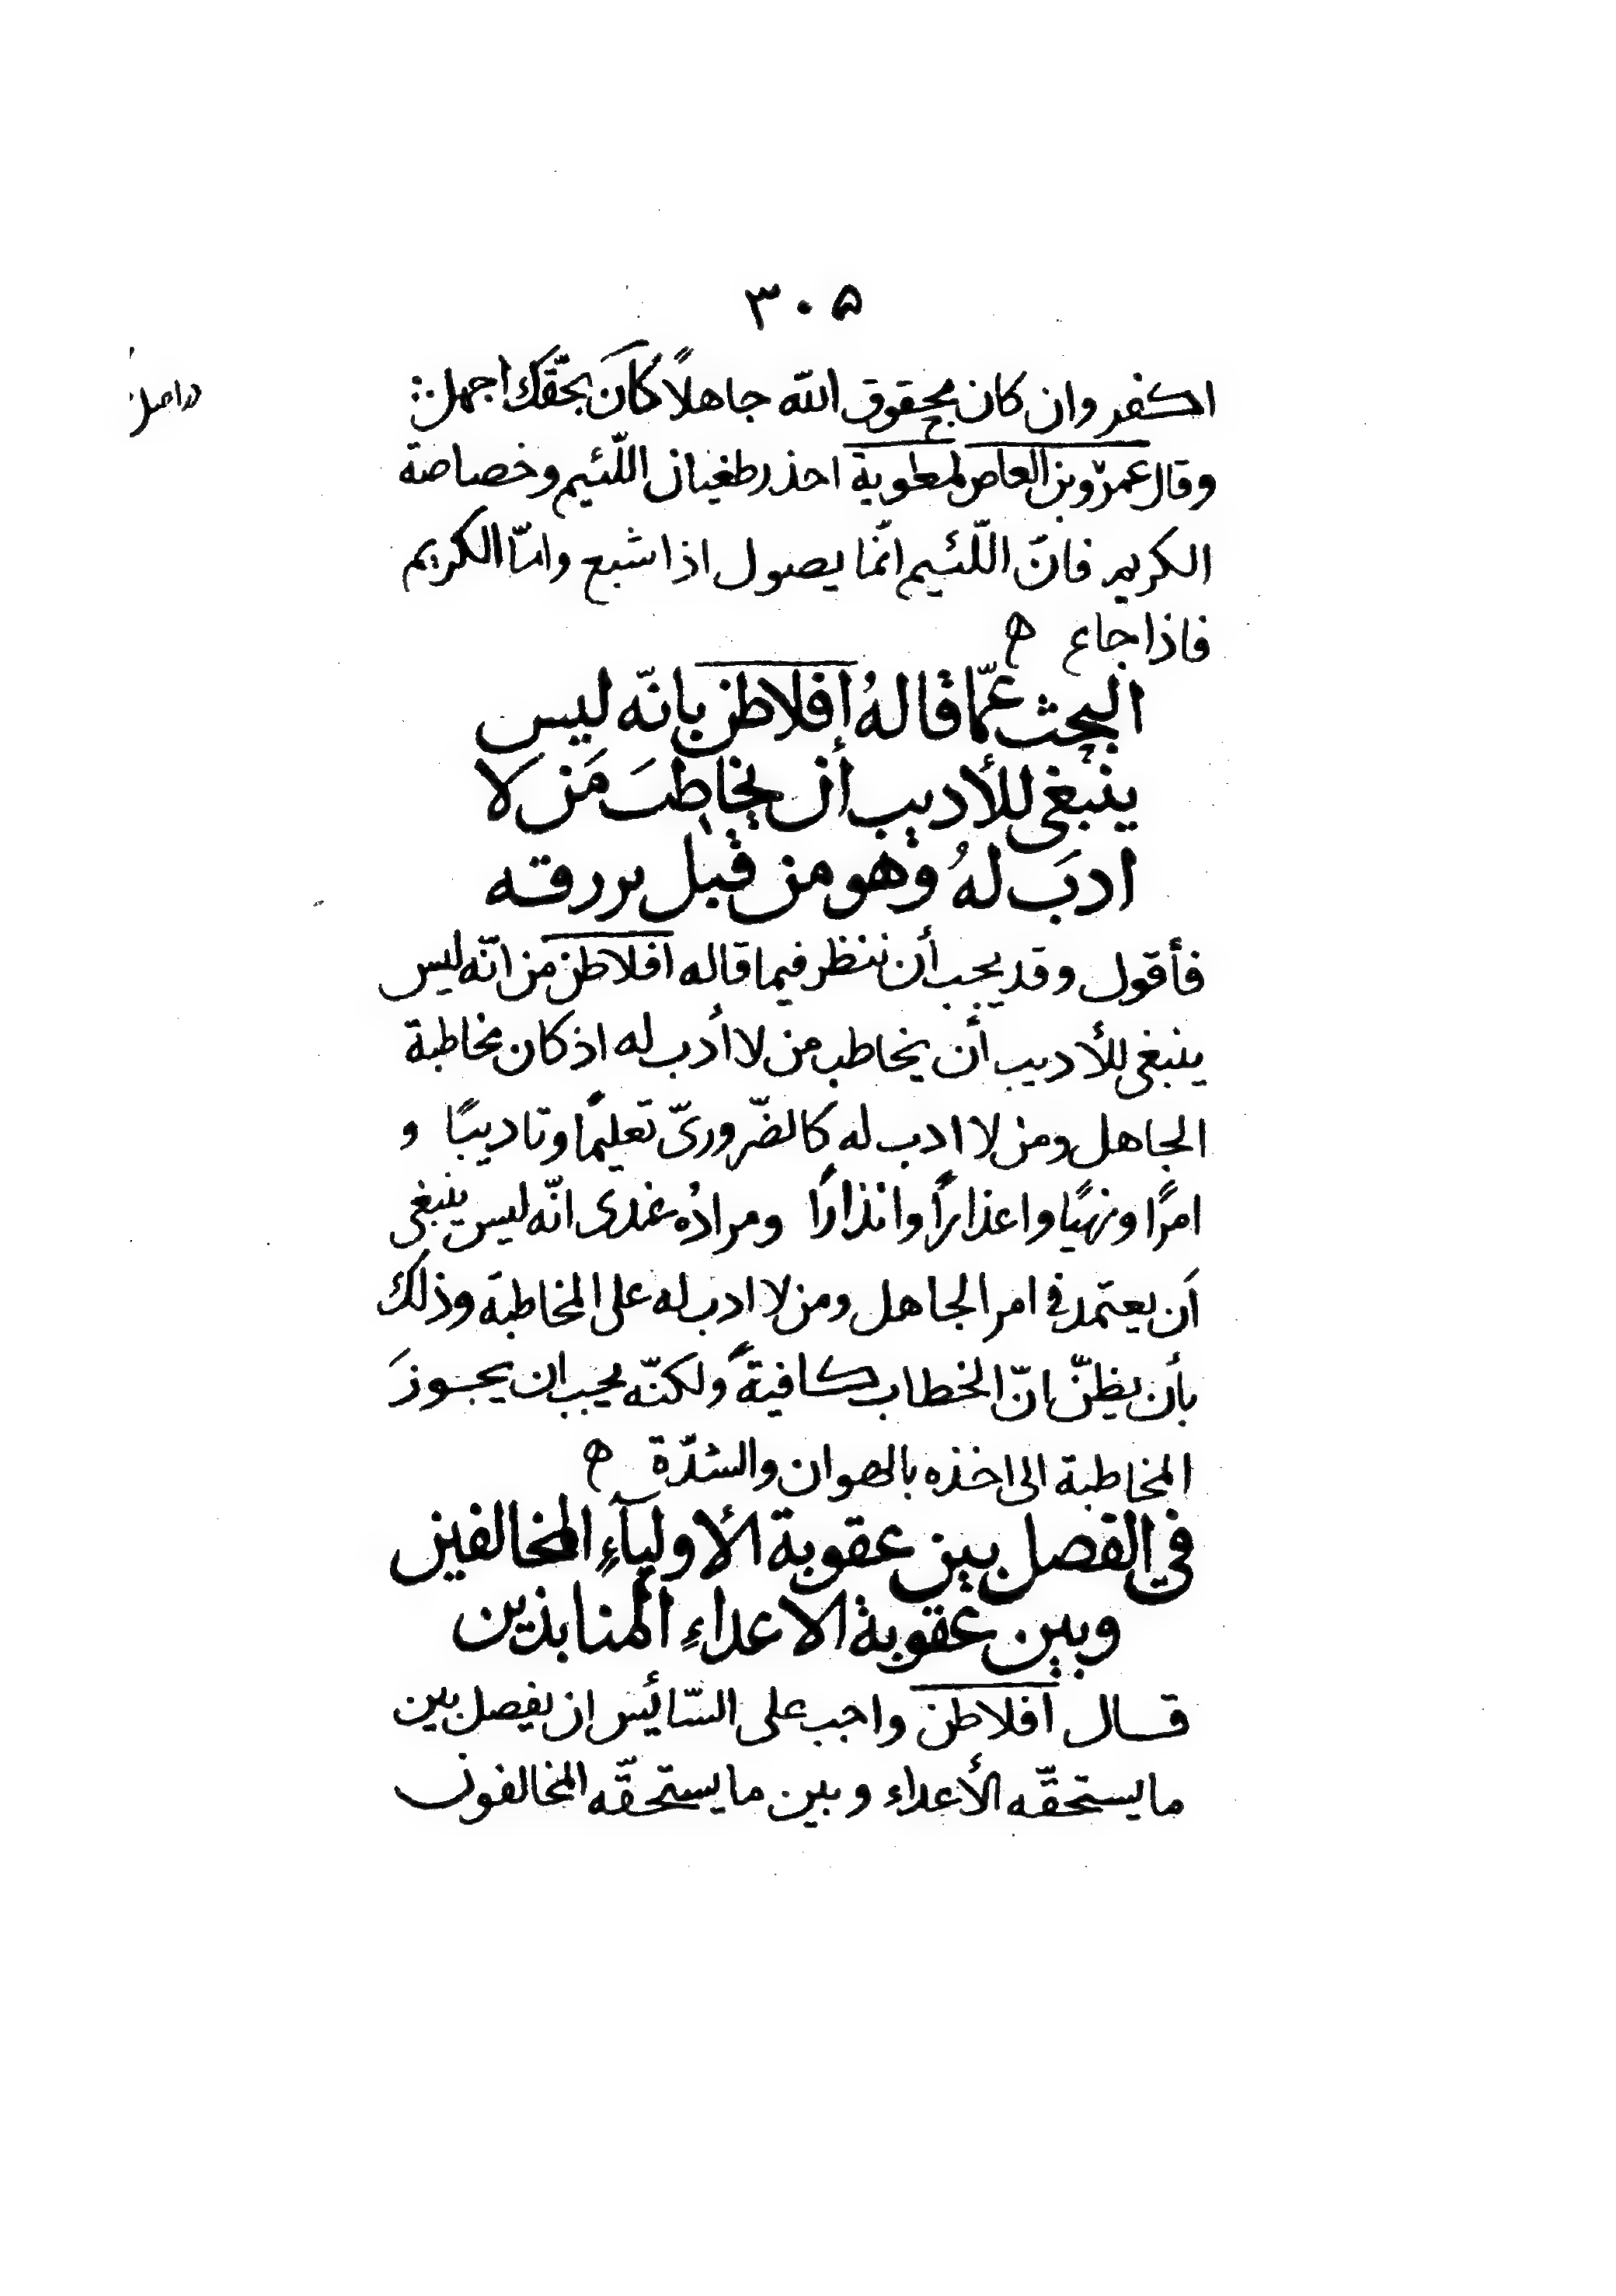 ٣٠۵
اكفر وان كان بحقوق الله جاهلًا كانَ بحقّك اجهل
وقال عمرو بن العاص لمعوية احذر طغيان اللّئيم وخصاصة
الكريم فانّ اللّئيم انّما يصول اذا شبع وامّا الكريم
فاذا جاع
البحث عمّا قالهُ افلاطن بانّه ليس
ينبغي للأديب أن يخاطبَ مَن لا
ادبَ لهُ وهو من قبل
فأقول وقد يجب أن ننظر فيما قاله افلاطن من انّه ليس
ينبغي للأديب أن يخاطب من لا أدب له اذ كان مخاطبة
الجاهل ومن لا ادب له كالضّروريّ تعليمًا وتاديبًا و
امرًا ونهيًا واعذارًا وانذارًا ومرادُه عندى انّه ليس ينبغي
أن يعتمد في امر الجاهل ومن لا ادب له على المخاطبة وذلك
بأن يظنّ انّ الخطاب كافيةً ولكنّه يجب ان يجوزَ
المخاطبة الى اخذه بالهوان والشدّة
في الفصل بين عقوبة الأوليآءِ المخالفين
وبين عقوبة الاعداءِ المنابذين
قال افلاطن واجب على السّائيس ان يفصل بين
ما يستحقّه الأعداء وبين ما يستحقّه المخالفون